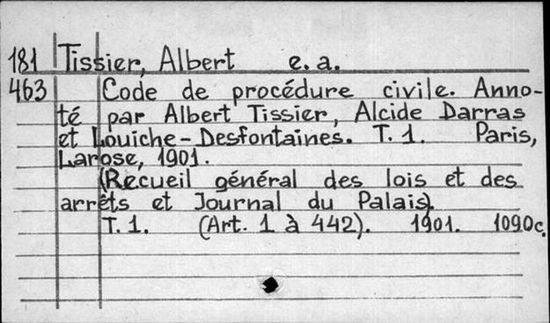 181 Tissier, Albert e. a.
463 Code de procédure civile. Anno-
té par Albert Tissier, Alcide Darras
et Louiche-Desfontaines. T. 1. Paris,
Larose, 1901.
(Recueil général des lois et des
arrêts et Journal du Palais).
T. 1. (Art. 1 à 442). 1901. 1090 c.